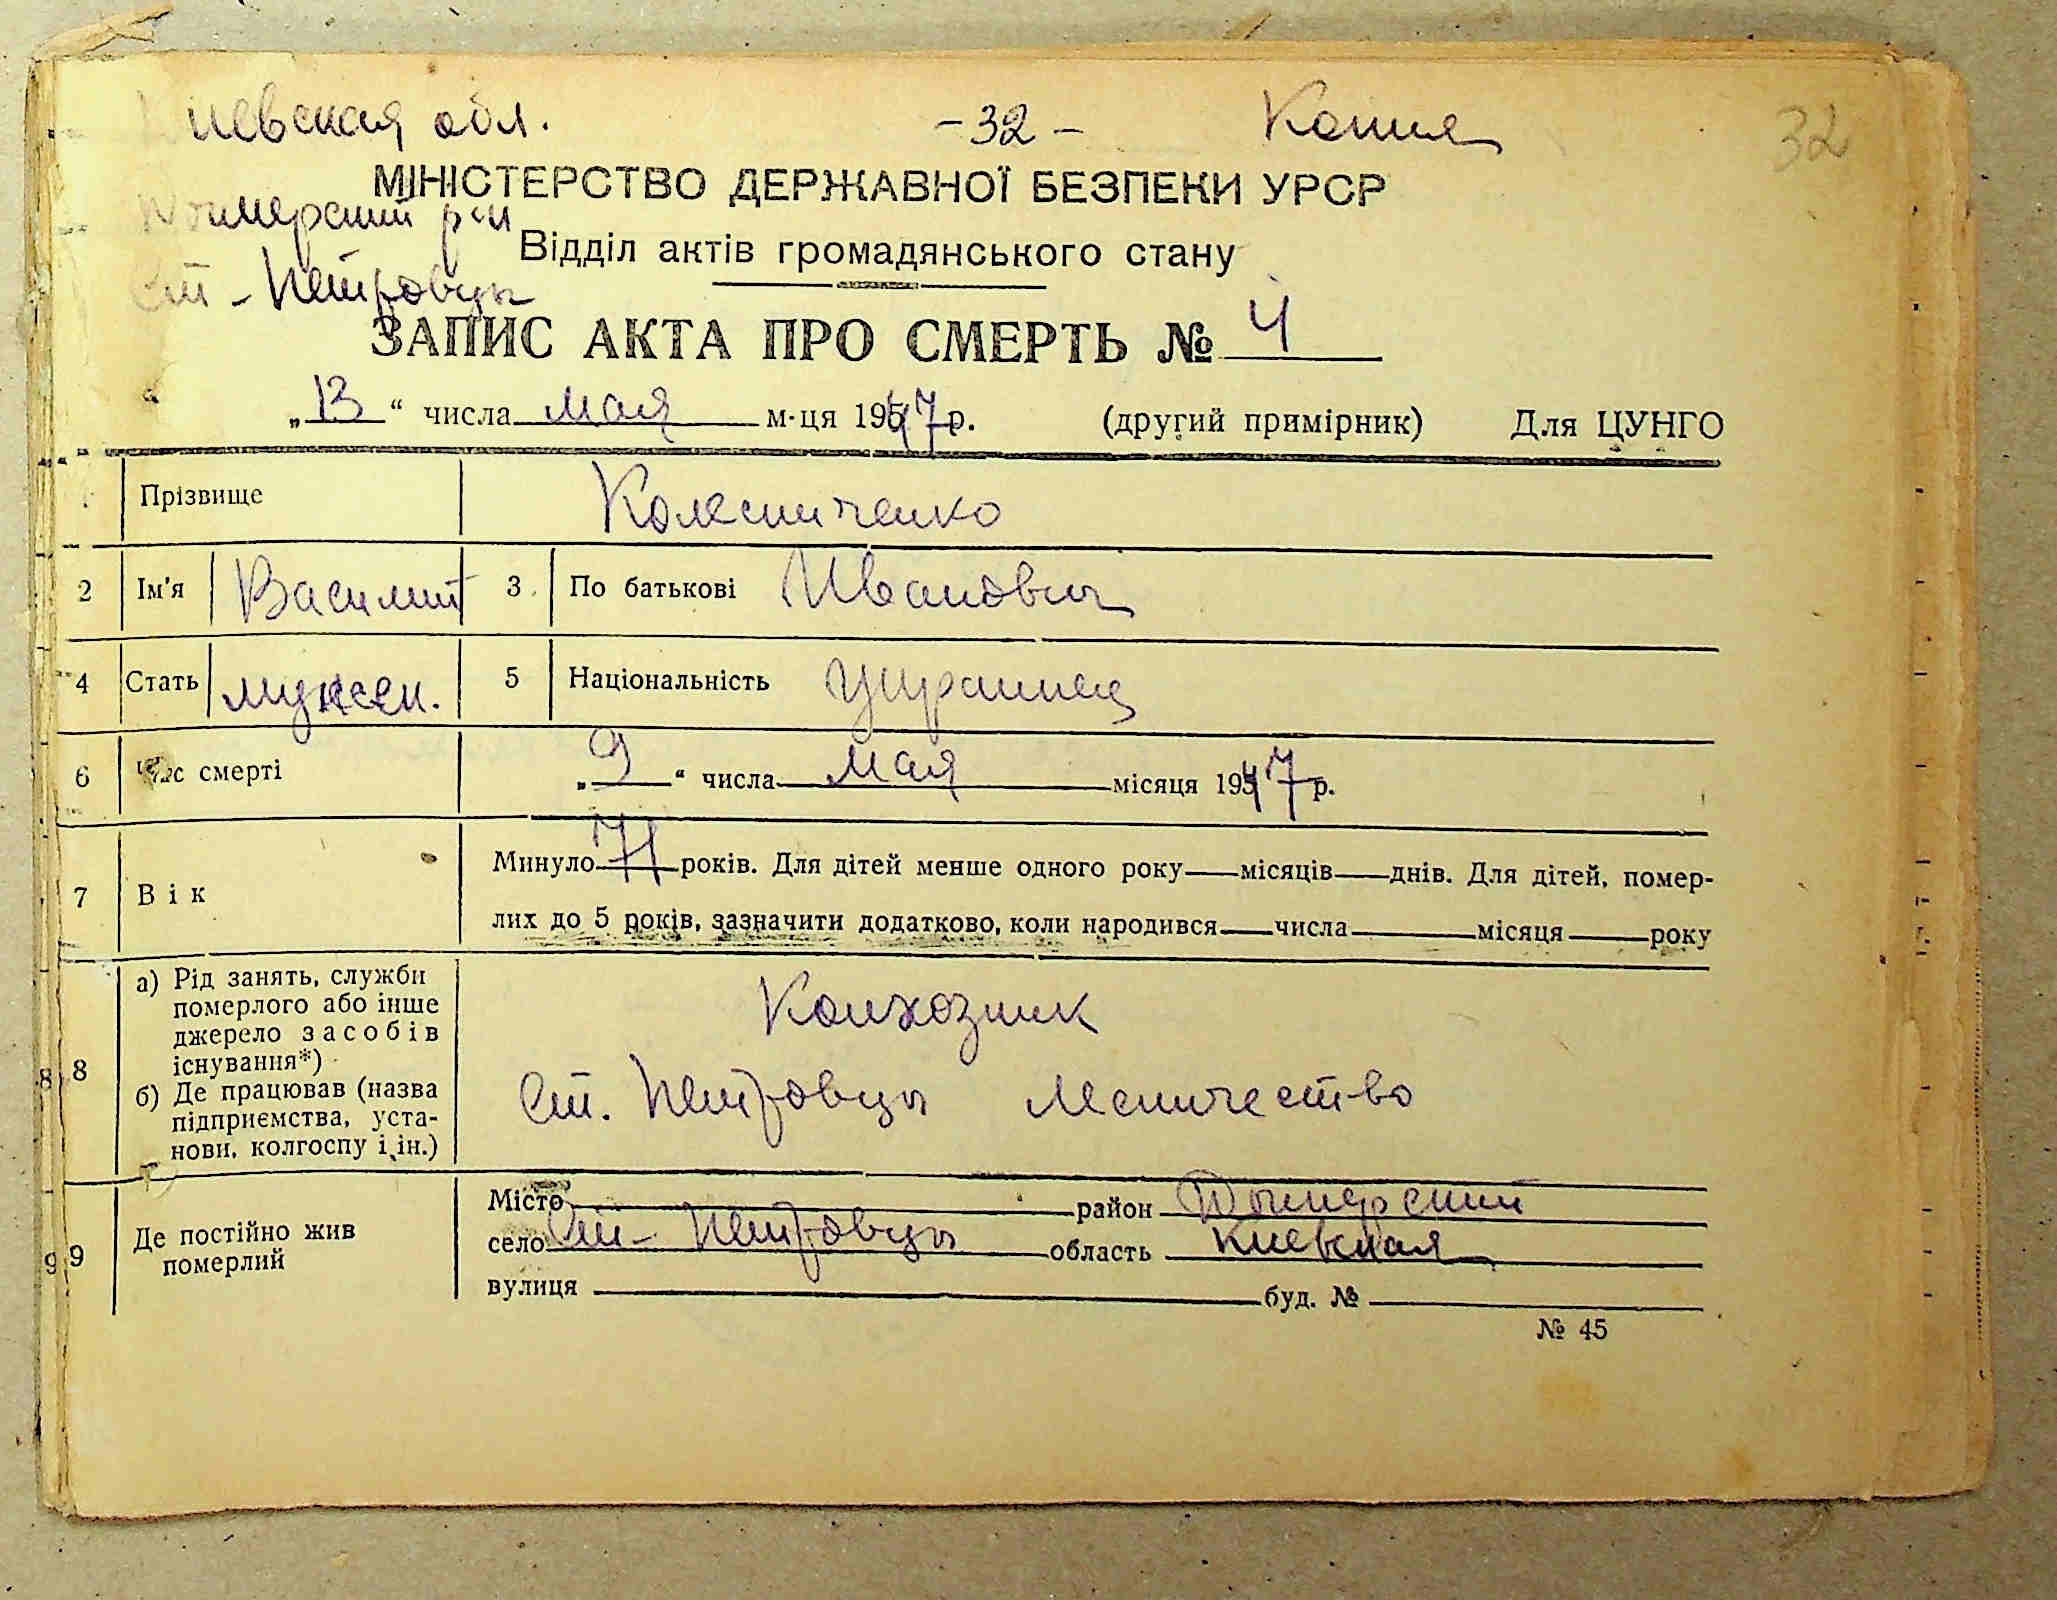 Киевская обл. - 32 - Копия 32
МІНІСТЕРСТВО ДЕРЖАВНОЇ БЕЗПЕКИ УРСР
Дымерский р-н
Відділ актів громадянського стану
Ст - Петровцы
ЗАПИС АКТА ПРО СМЕРТЬ № 4
„13“ числа мая м-ця 1947 р. (другий примірник) Для ЦУНГО
Прізвище Колесниченко
2 Ім'я Василий 3 По батькові Иванович
4 Стать мужск. 5 Національність украинец
6 Час смерті „9“ числа мая місяця 1947 р.
7 Вік Минуло 71 років. Для дітей менше одного року місяців днів. Для дітей, помер-
лих до 5 років, зазначити додатково, коли народився числа місяця року
8 8 а) Рід занять, служби
померлого або інше
джерело засобів
існування*)
б) Де працював (назва
підприємства, уста-
нови, колгоспу і ін.)
Колхозник
Ст. Петровцы Лесничество
9 9 Де постійно жив
померлий
Місто район Дымерский
село Ст - Петровцы область Киевская
вулиця буд. №
№ 45